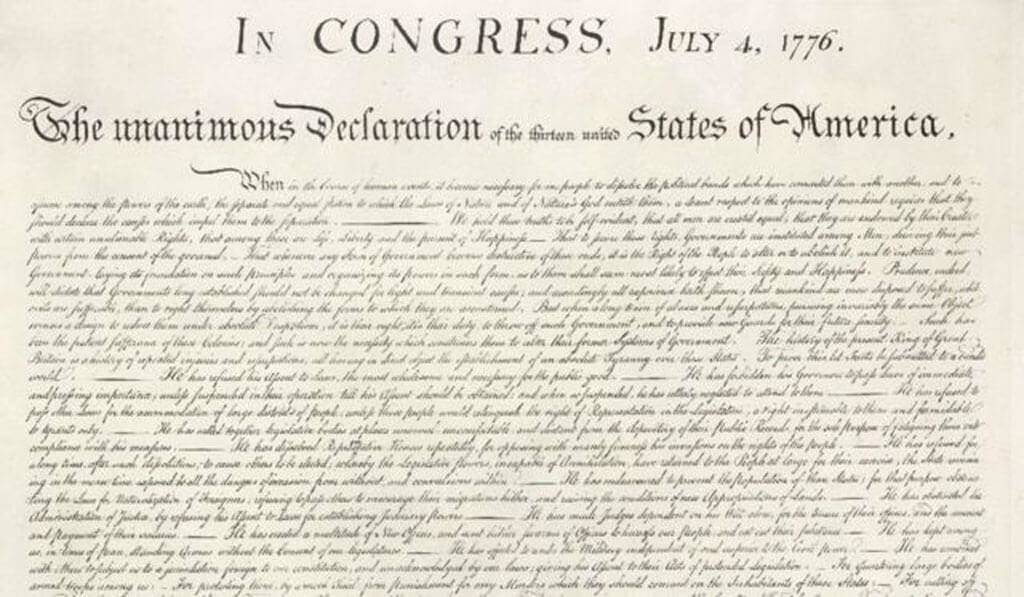 IN CONGRESS, JULY 4, 1776.
The unanimous Declaration of the thirteen united States of America,
When in the Course of human events, it becomes necessary for one people to dissolve the political bands which have connected them with another, and to
assume among the powers of the earth, the separate and equal station to which the Laws of Nature and of Nature's God entitle them, a decent respect to the opinions of mankind requires that they
should declare the causes which impel them to the separation. We hold these truths to be self-evident, that all men are created equal, that they are endowed by their Creator
with certain unalienable Rights, that among these are Life, Liberty and the pursuit of Happiness.— That to secure these rights, Governments are instituted among Men, deriving their just
powers from the consent of the governed,— That whenever any Form of Government becomes destructive of these ends, it is the Right of the People to alter or to abolish it, and to institute new
Government, laying its foundation on such principles and organizing its powers in such form, as to them shall seem most likely to effect their Safety and Happiness. Prudence, indeed,
will dictate that Governments long established should not be changed for light and transient causes; and accordingly all experience hath shewn, that mankind are more disposed to suffer, while
evils are sufferable, than to right themselves by abolishing the forms to which they are accustomed. But when a long train of abuses and usurpations, pursuing invariably the same Object
evinces a design to reduce them under absolute Despotism, it is their right, it is their duty, to throw off such Government, and to provide new Guards for their future security.— Such has
been the patient sufferance of these Colonies; and such is now the necessity which constrains them to alter their former Systems of Government. The history of the present King of Great
Britain is a history of repeated injuries and usurpations, all having in direct object the establishment of an absolute Tyranny over these States. To prove this, let Facts be submitted to a candid
world. He has refused his Assent to Laws, the most wholesome and necessary for the public good. He has forbidden his Governors to pass Laws of immediate
and pressing importance, unless suspended in their operation till his Assent should be obtained; and when so suspended, he has utterly neglected to attend to them. He has refused to
pass other Laws for the accommodation of large districts of people, unless those people would relinquish the right of Representation in the Legislature, a right inestimable to them and formidable
to tyrants only. He has called together legislative bodies at places unusual, uncomfortable, and distant from the depository of their Public Records, for the sole purpose of fatiguing them into
compliance with his measures. He has dissolved Representative Houses repeatedly, for opposing with manly firmness his invasions on the rights of the people. He has refused for
a long time, after such dissolutions, to cause others to be elected; whereby the Legislative powers, incapable of Annihilation, have returned to the People at large for their exercise; the State remain-
ing in the mean time exposed to all the dangers of invasion from without, and convulsions within. He has endeavoured to prevent the population of these States; for that purpose obstruc-
ting the Laws for Naturalization of Foreigners; refusing to pass others to encourage their migrations hither, and raising the conditions of new Appropriations of Lands. He has obstructed the
Administration of Justice, by refusing his Assent to Laws for establishing Judiciary powers. He has made Judges dependent on his Will alone, for the tenure of their offices, and the amount
and payment of their salaries. He has erected a multitude of New Offices, and sent hither swarms of Officers to harrass our people, and eat out their substance. He has kept among
us, in times of peace, Standing Armies without the Consent of our legislatures. He has affected to render the Military independent of and superior to the Civil power. He has combined
with others to subject us to a jurisdiction foreign to our constitution, and unacknowledged by our laws; giving his Assent to their Acts of pretended Legislation:— For Quartering large bodies of
armed troops among us:— For protecting them, by a mock Trial, from punishment for any Murders which they should commit on the Inhabitants of these States:— For cutting off